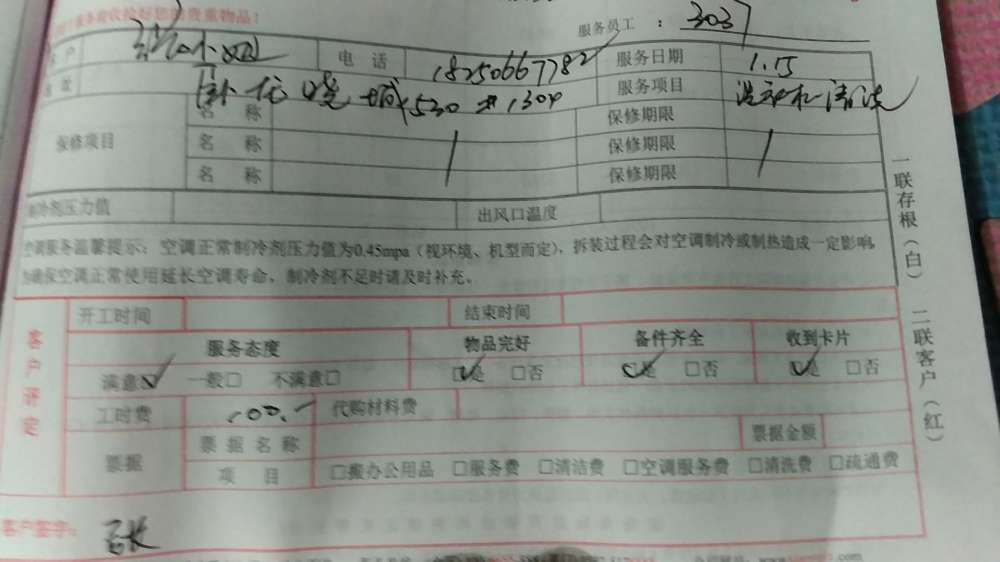 收拾好您的贵重物品！
服务员工：3037
户 张小姐 电 话 18250667782 服务日期 1.15
址 卧龙晓城530#1304 服务项目 洗衣机清洗
保修项目 名 称 保修期限
名 称 保修期限
名 称 保修期限
制冷剂压力值 出风口温度
空调服务温馨提示：空调正常制冷剂压力值为0.45mpa（视环境、机型而定），拆装过程会对空调制冷或制热造成一定影响，
为确保空调正常使用延长空调寿命，制冷剂不足时请及时补充。
一联存根（白） 二联客户（红）
客户评定
开工时间 结束时间
服务态度 物品完好 备件齐全 收到卡片
满意☑ 一般□ 不满意□ ☑是 □否 ☑是 □否 ☑是 □否
工时费 100.- 代购材料费
票据 票据名称 票据金额
项 目 □搬办公用品 □服务费 □清洁费 □空调服务费 □清洗费 □疏通费
客户签字：